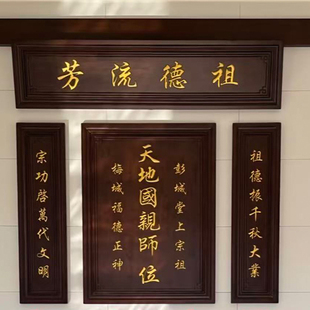 祖德流芳
祖德振千秋大業
彭城堂上宗祖
天地國親師位
梅城福德正神
宗功啓萬代文明